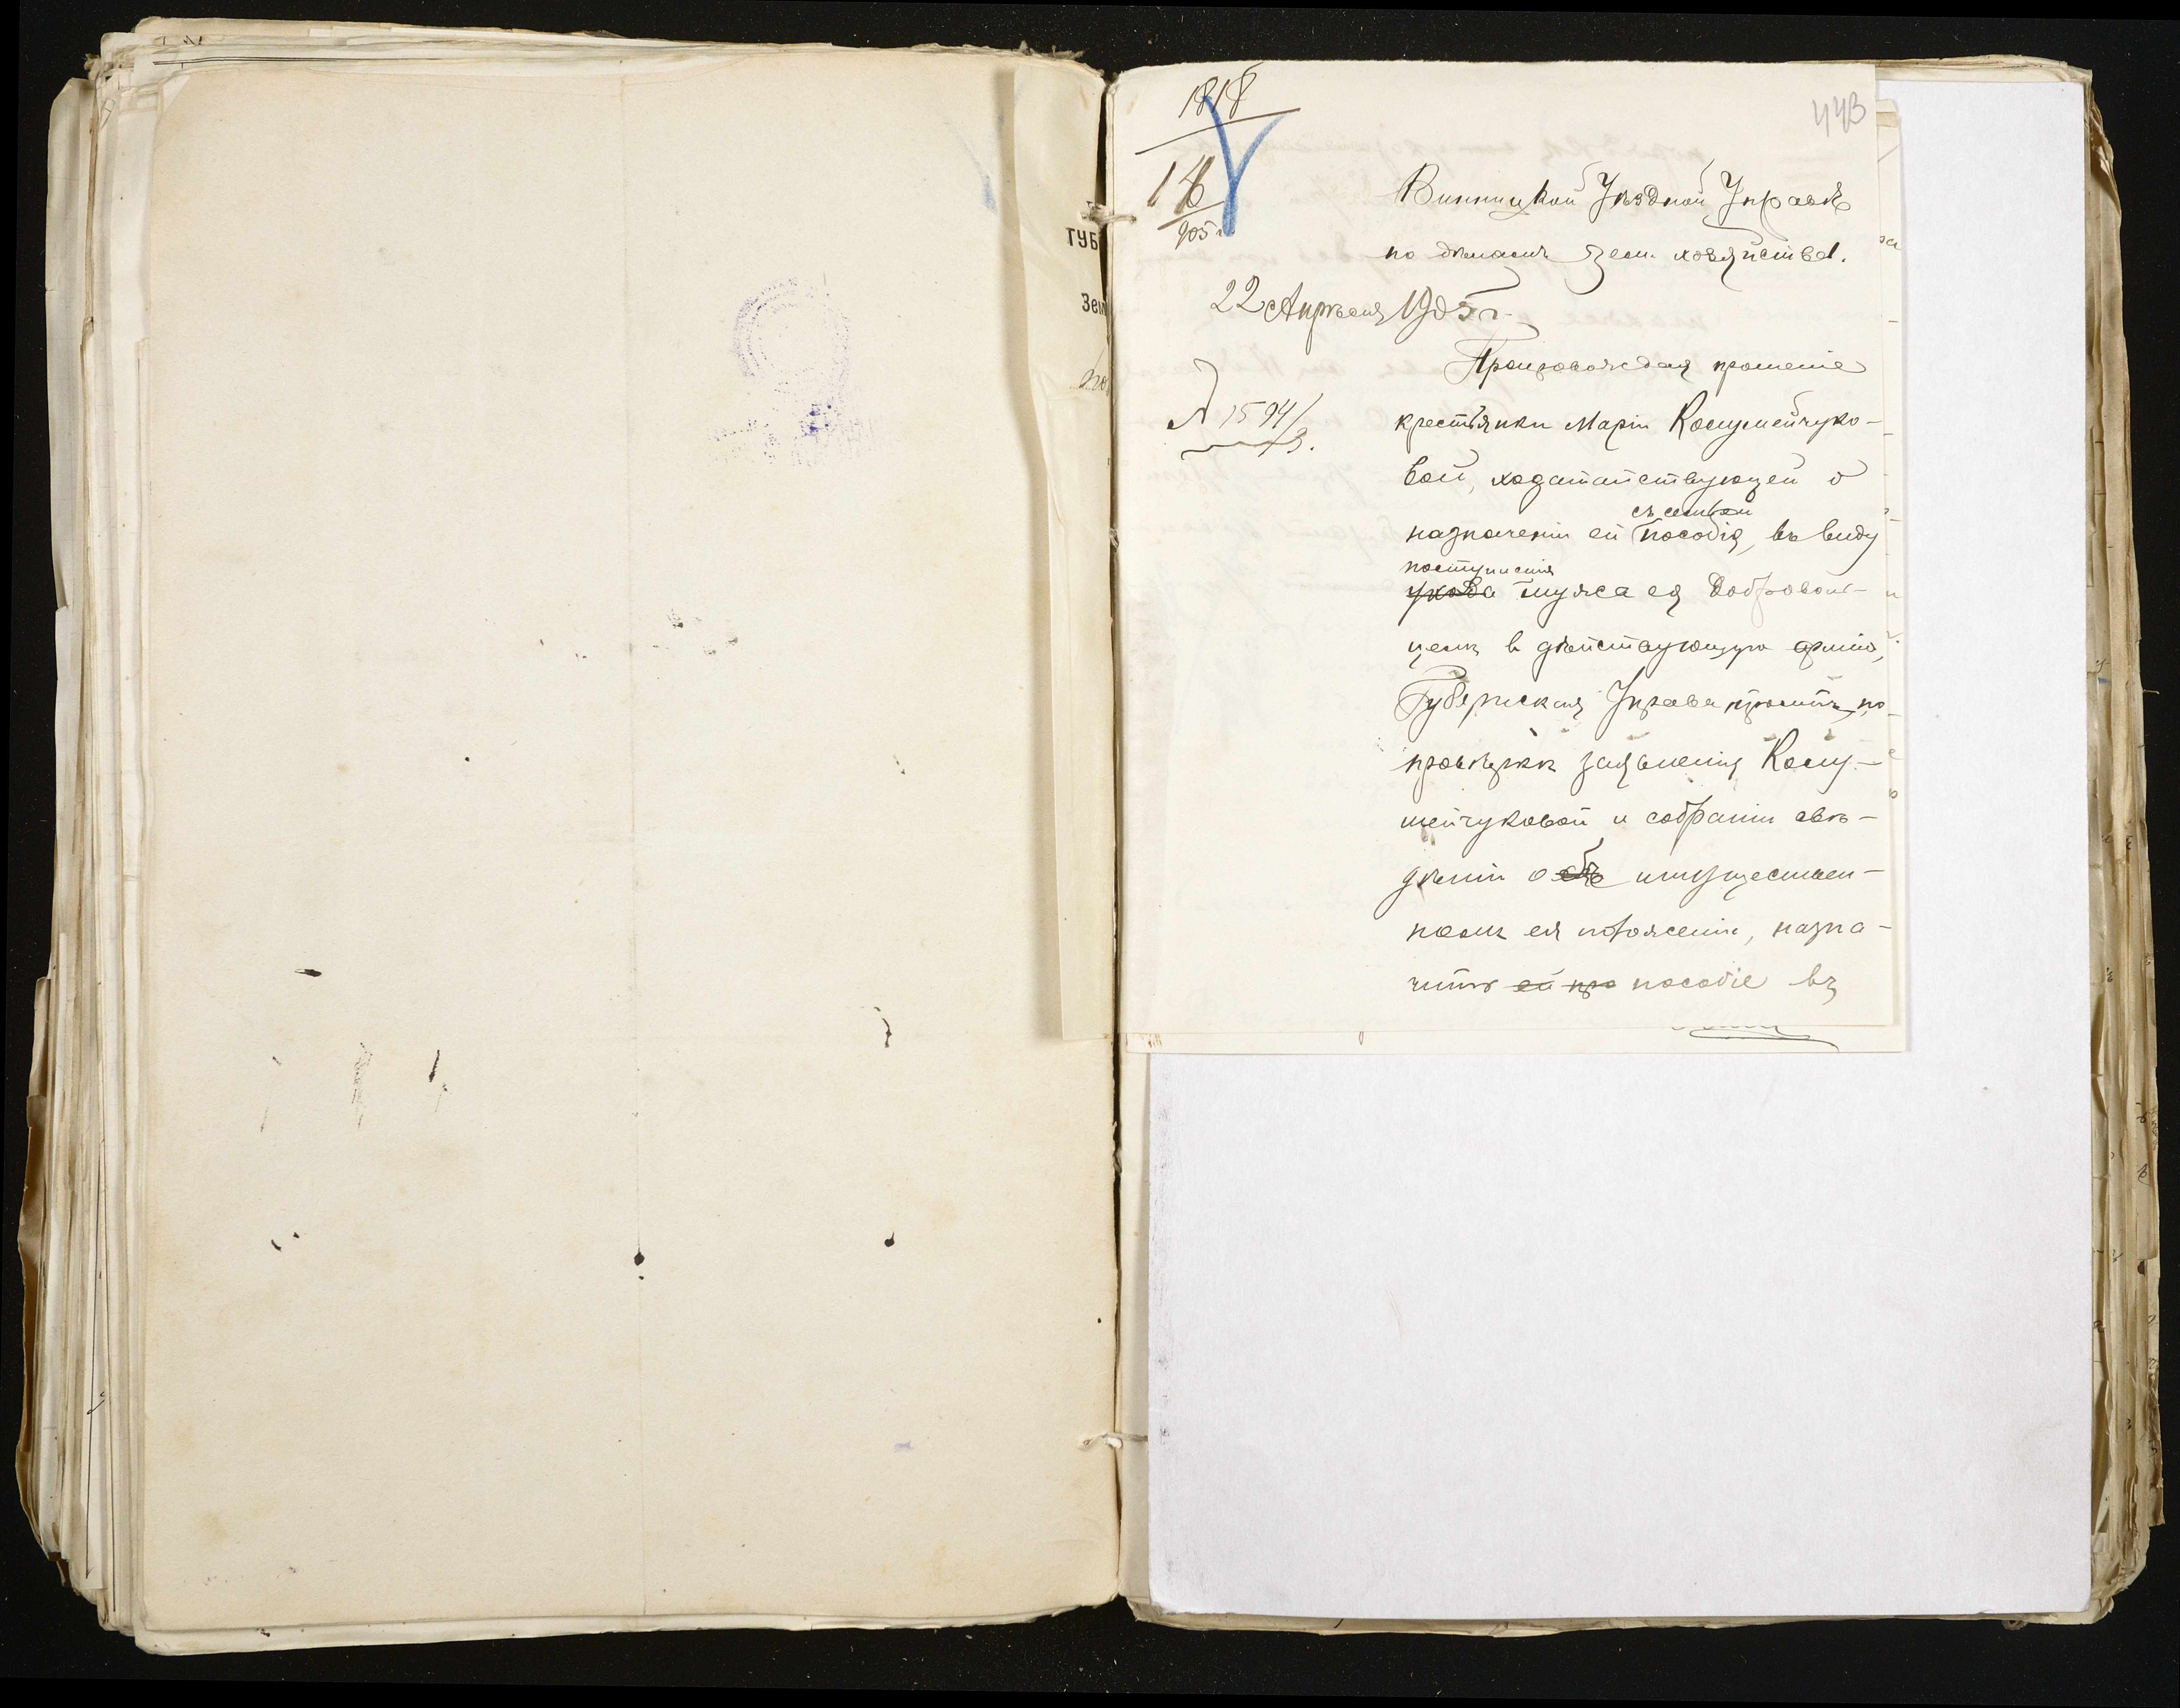 ГУБ
Зем
443
1818
14
905 г.
Винницкой Уѣздной Управѣ
по дѣламъ Зем. хозяйства.
22 Апрѣля 1905 г.
№ 1594/3.
Препровождая прошеніе
крестьянки Маріи Кошумейчуко-
вой, ходатайствующей о
съ семьей
назначеніи ей пособія, въ виду
поступленія
ухода мужа ея доброволь-
цемъ в дѣйствующую армію,
Губернская Управа проситъ, по
провѣркѣ заявленія Кошу-
мейчуковой и собраніи свѣ-
дѣній объ имуществен-
номъ ея положеніи, назна-
чить ей про пособіе въ